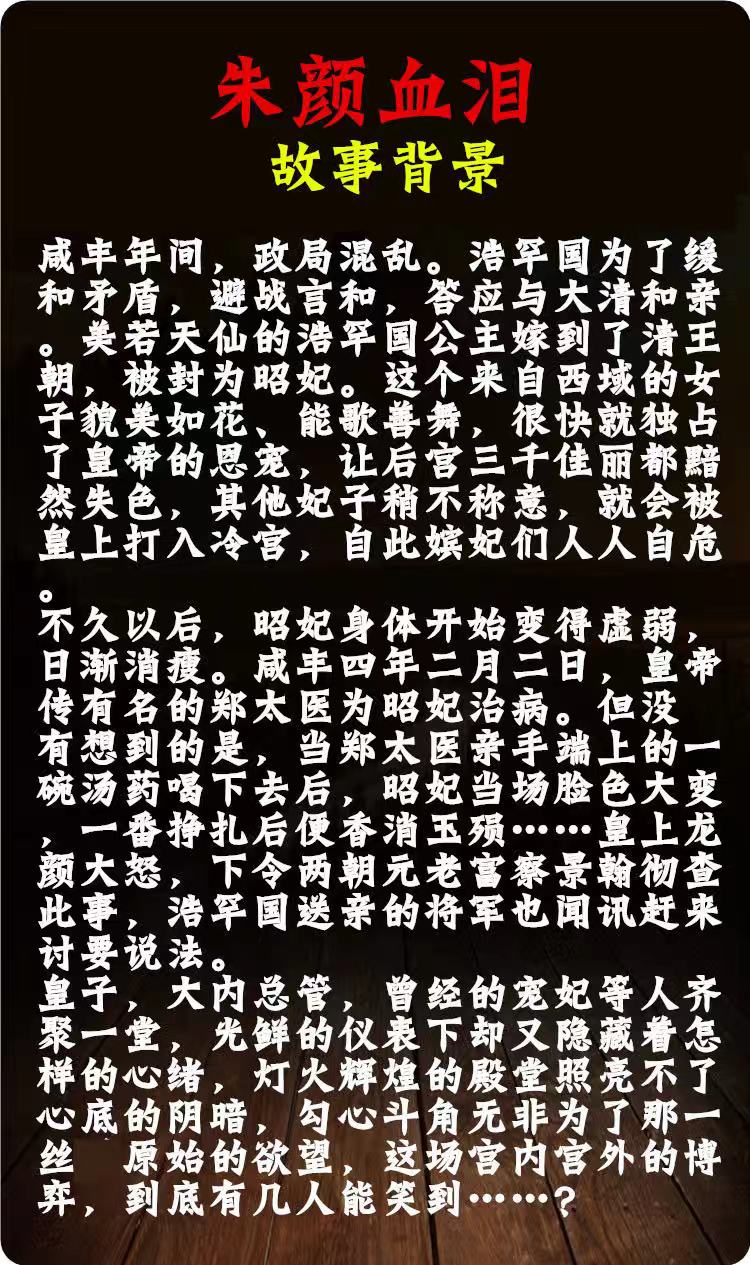 朱颜血泪
故事背景
咸丰年间，政局混乱。浩罕国为了缓
和矛盾，避战言和，答应与大清和亲
。美若天仙的浩罕国公主嫁到了清王
朝，被封为昭妃。这个来自西域的女
子貌美如花、能歌善舞，很快就独占
了皇帝的恩宠，让后宫三千佳丽都黯
然失色，其他妃子稍不称意，就会被
皇上打入冷宫，自此嫔妃们人人自危
。
不久以后，昭妃身体开始变得虚弱，
日渐消瘦。咸丰四年二月二日，皇帝
传有名的郑太医为昭妃治病。但没
有想到的是，当郑太医亲手端上的一
碗汤药喝下去后，昭妃当场脸色大变
，一番挣扎后便香消玉殒……皇上龙
颜大怒，下令两朝元老富察景翰彻查
此事，浩罕国送亲的将军也闻讯赶来
讨要说法。
皇子，大内总管，曾经的宠妃等人齐
聚一堂，光鲜的仪表下却又隐藏着怎
样的心绪，灯火辉煌的殿堂照亮不了
心底的阴暗，勾心斗角无非为了那一
丝 原始的欲望，这场宫内宫外的博
弈，到底有几人能笑到……？